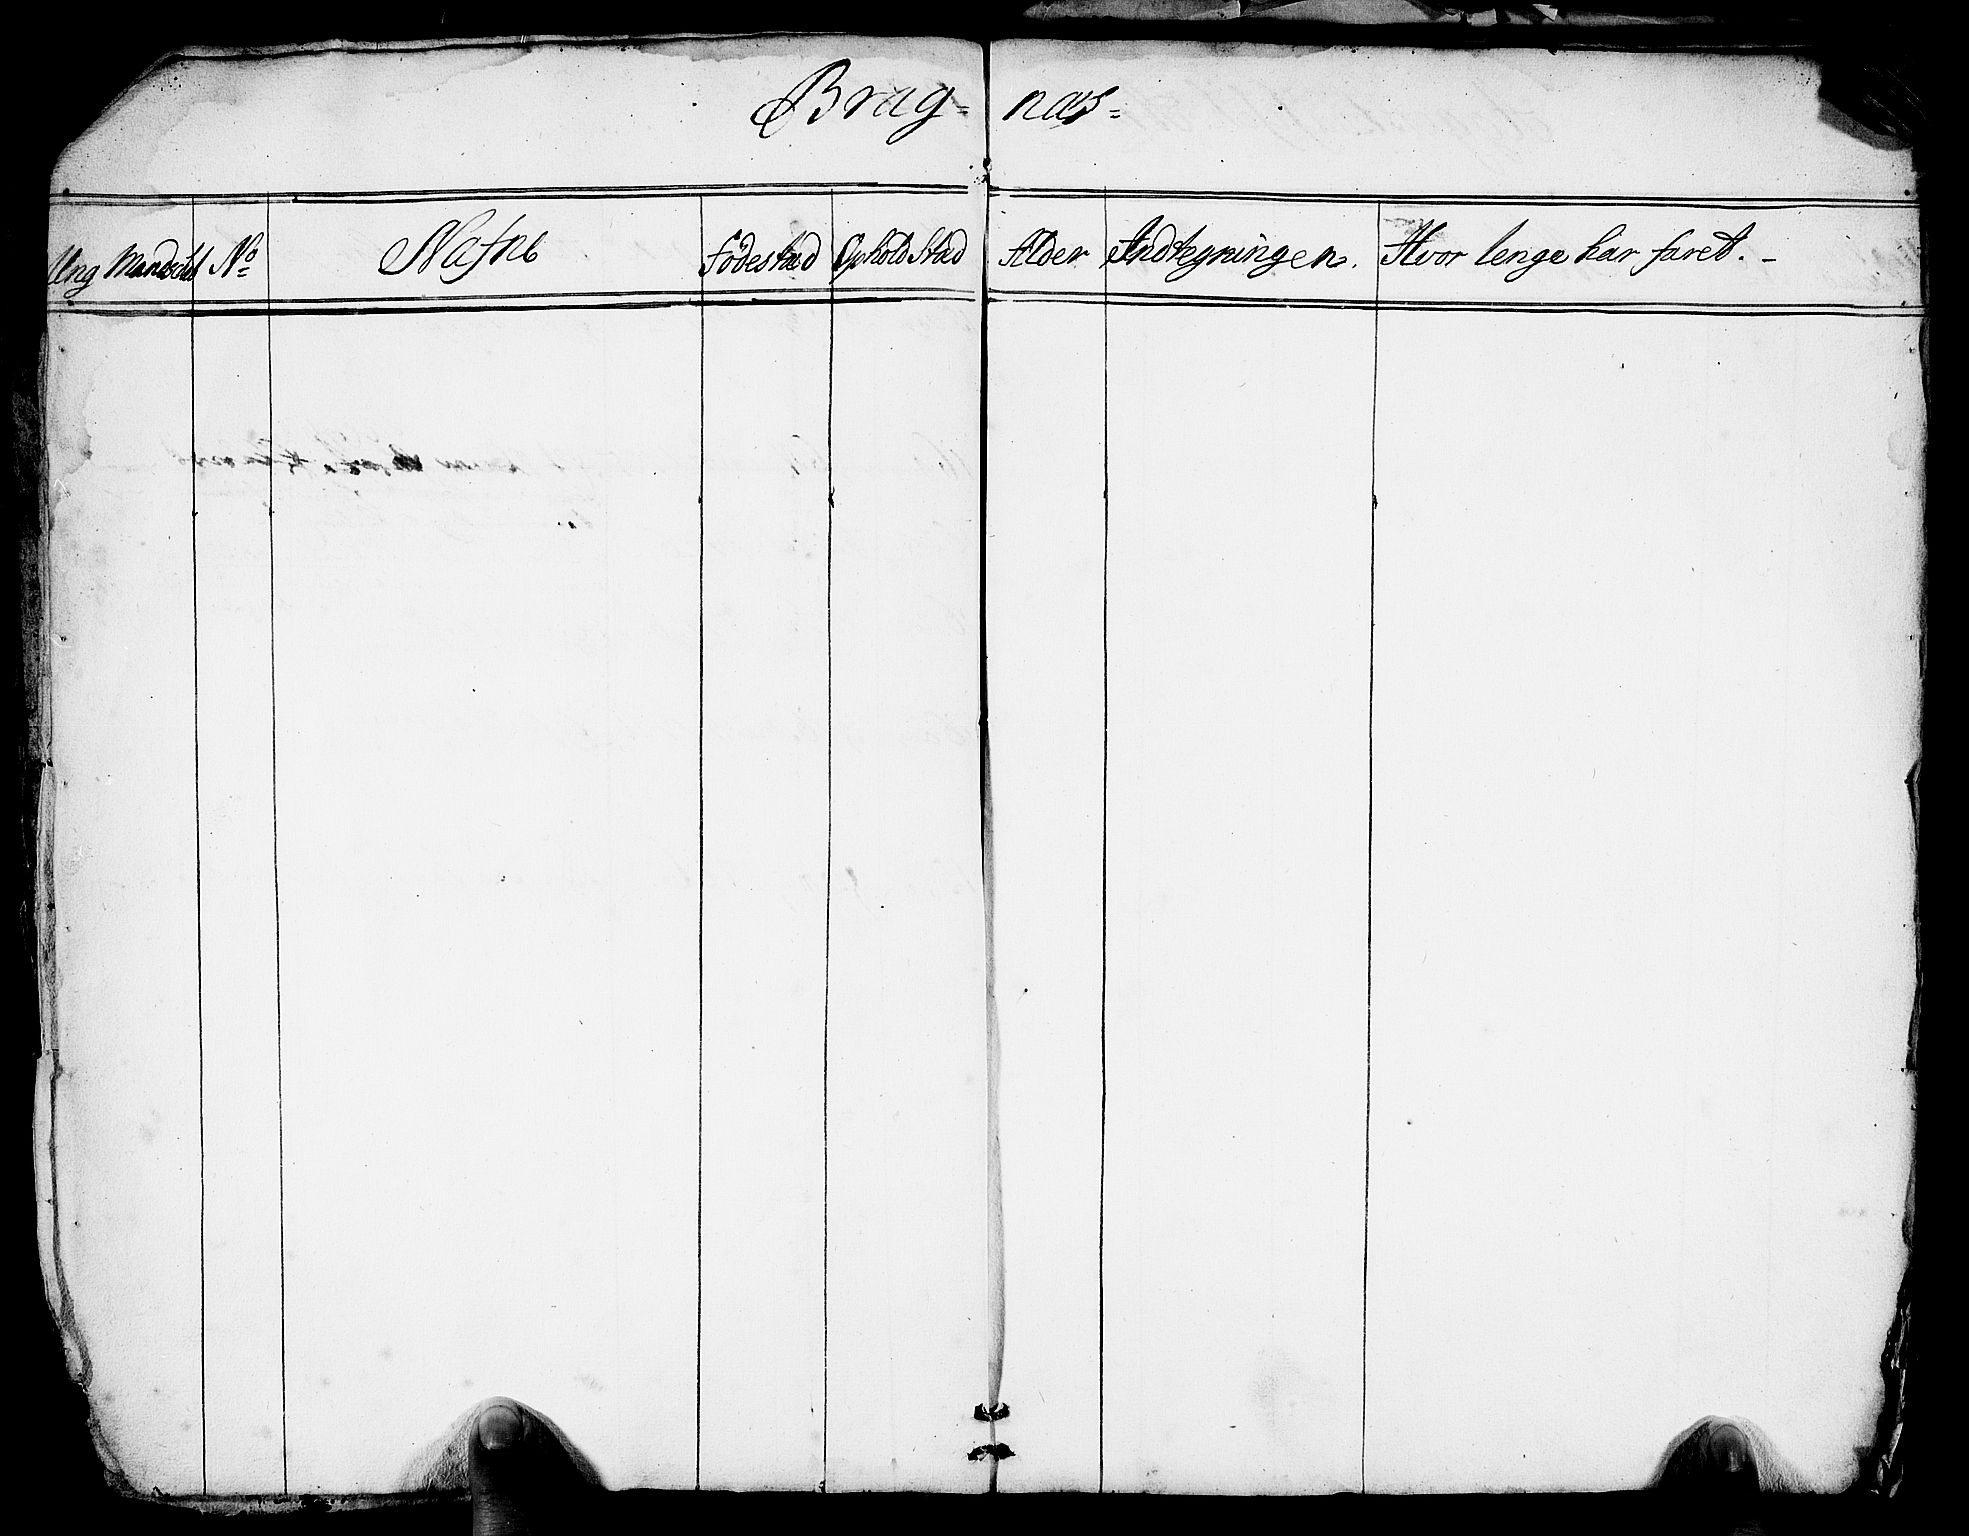 Brag= næs=
Ung Mandschab No Nafne Födestæd Opholdstæd Alder Indtegningen. Hvor lenge har faret. -